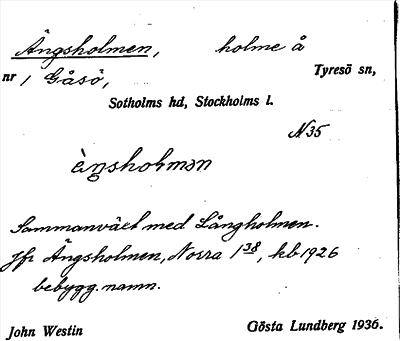 Ängsholmen, holme å
nr 1 Gåsö, Tyresö sn,
Sotholms hd, Stockholms l.
N35
èŋsholmən
Sammanväxt med Långholmen.
Jfr Ängsholmen, Norra 1 38, kb 1926
bebygg. namn.
John Westin Gösta Lundberg 1936.